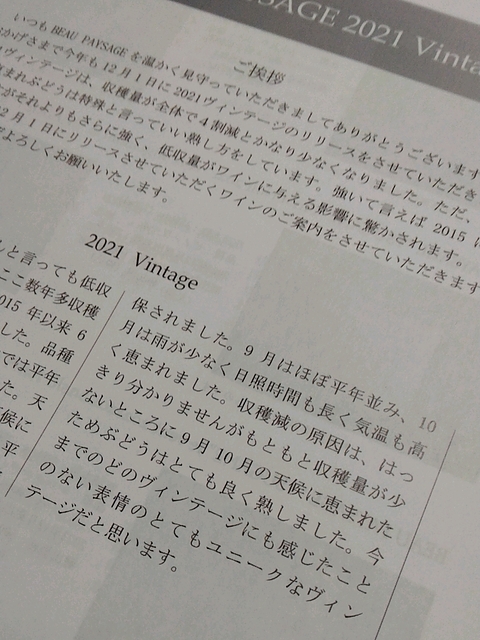 PAYSAGE 2021 Vinta
ご挨拶
いつも BEAU PAYSAGE を温かく見守っていただきましてありがとうございます
おかげさまで今年も12月1日に2021ヴィンテージのリリースをさせていただき
ヴィンテージは、収穫量が全体で4割減とかなり少なくなりました。ただ、
まれぶどうは特殊と言っていい熟し方をしています。強いて言えば 2015 に
がそれよりもさらに強く、低収量がワインに与える影響に驚かされます。
2月1日にリリースさせていただくワインのご案内をさせていただきます
よろしくお願いいたします。
2021 Vintage
と言っても低収
ここ数年多収穫
015 年以来 6
した。品種
では平年
た。天
候に
平
保されました。9 月はほぼ平年並み、10
月は雨が少なく日照時間も長く気温も高
く恵まれました。収穫減の原因は、はっ
きり分かりませんがもともと収穫量が少
ないところに 9 月 10 月の天候に恵まれた
ためぶどうはとても良く熟しました。今
までのどのヴィンテージにも感じたこと
のない表情のとてもユニークなヴィン
テージだと思います。